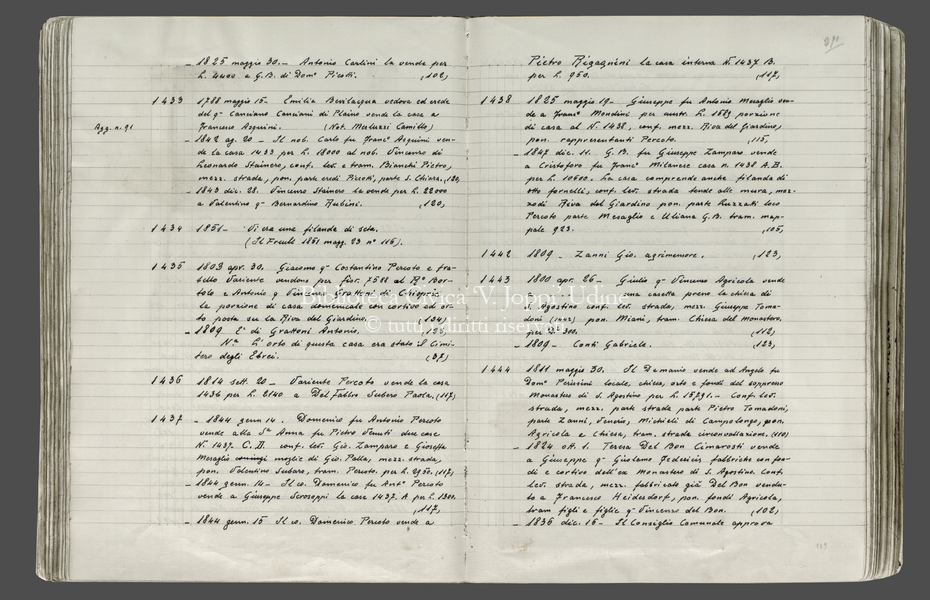 - 1825 maggio 30. - Antonio Carlini la vende per
L. 4400 a G.B. di Dom° Picotti. (102,
1433 1788 maggio 15 - Emilia Bevilacqua vedova ed erede
del q- Canciano Canciani di Plaino vende la casa a
Agg. n. 91
Francesco Asquini. (Not. Merluzzi Camillo)
- 1842 ag. 20 - Il nob. Carlo fu Franc° Asquini ven-
de la casa 1433 per L. 18000 al nob. Vincenzo di
Leonardo Stainero, conf. lev. e tram. Bianchi Pietro,
mezz. strada, pon. parte eredi Picotti, parte S. Chiara. (120,
- 1843 dic. 28. Vincenzo Stainero la vende per L. 22000
a Valentino q- Bernardino Rubini. (120,
1434 1851 - Vi era una filanda di seta.
(Il Friuli 1851 magg. 23 n° 116).
1435 1803 apr. 30. Giacomo q- Costantino Percoto e fra-
tello Variente vendono per Lor. 7588 al R° Bor-
tolo e Antonio q- Grattoni di Chiopris
la porzione di casa domenicale con cortivo ed or-
to posta su la Riva del Giardino. (134)
- 1809 È di Grattoni Antonio.
N.a L'orto di questa casa era stato il Cimi-
tero degli Ebrei. (37)
1436 1814 sett. 20 - Variente Percoto vende la casa
1436 per L. 2140 a Del Fabbro Subero Paola. (117)
1437 - 1844 genn. 14. Domenico fu Antonio Percoto
vende alla S.a Anna fu Pietro Venuti due case
N. 1437. C. D. conf. lev. Gio. Zamparo e Gioseffa
Mesaglio moglie di Gio. Palla, mezz. strada,
pon. Valentino Subaro, tram. Percoto. per L. 2950. (117)
- 1844 genn. 14 - Il co. Domenico fu Ant° Percoto
vende a Giuseppe Scrosoppi la casa 1437. A per L. 1300.
(117,
- 1844 genn. 15 Il co. Domenico Percoto vende a
Pietro Rigagnini la casa interna N. 1437 B.
per L. 950. (117,
1438 1825 maggio 19 - Giuseppe fu Antonio Mesaglio ven-
de a Franc° Mondini per austr. L. 1689 porzione
di casa al N. 1438, conf. mezz. Riva del Giardino,
pon. rappresentanti Percoto. (115,
- 1847 dic. 11. G.B. fu Giuseppe Zamparo vende
a Cristoforo fu Franc° Milanese casa n. 1438 A.B.
per L. 10600. - La casa comprende anche filanda di
otto fornelli, conf. lev. strada tende alle mura, mez-
zodì Riva del Giardino pon. parte Luzzatti loco
Percoto parte Mesaglio e Uliana G.B. tram. map-
pale 923. (105,
1442 1809 - Zanni Gio. agrimensore. (123,
1443 1800 apr. 26 - Giulio q- Vincenzo Agricola vende
una casetta presso la chiesa di
S. Agostino conf. lev. strada, mezz. Giuseppe Toma-
doni (1442) pon. Miani, tram. Chiesa del Monastero.
per D. 300. (112)
- 1809 - Conti Gabriele. (123,
1444 1811 maggio 30. Il Demanio vende ad Angelo fu
Dom° Perissini locale, chiesa, orto e fondi del soppresso
Monastero di S. Agostino per L. 15791. - Conf. lev.
strada, mezz. parte strada parte Pietro Tomadoni,
parte Zanni, Venerio, Michieli di Campolongo, pon.
Agricola e Chiesa, tram. strada circonvallazione. (110)
- 1824 ott. 1. Teresa Del Bon Cimarosti vende
a Giuseppe q- Girolamo Federicis fabbriche con fon-
di e cortivo dell'ex Monastero di S. Agostino. Conf.
lev. strada, mezz. fabbricato già Del Bon vendu-
to a Francesco Heidersdorf, pon. fondi Agricola,
tram figli e figlie q- Vincenzo del Bon. (102,
- 1836 dic. 16 - Il Consiglio Comunale approva
Biblioteca Civica "V. Joppi" Udine
© tutti i diritti riservati